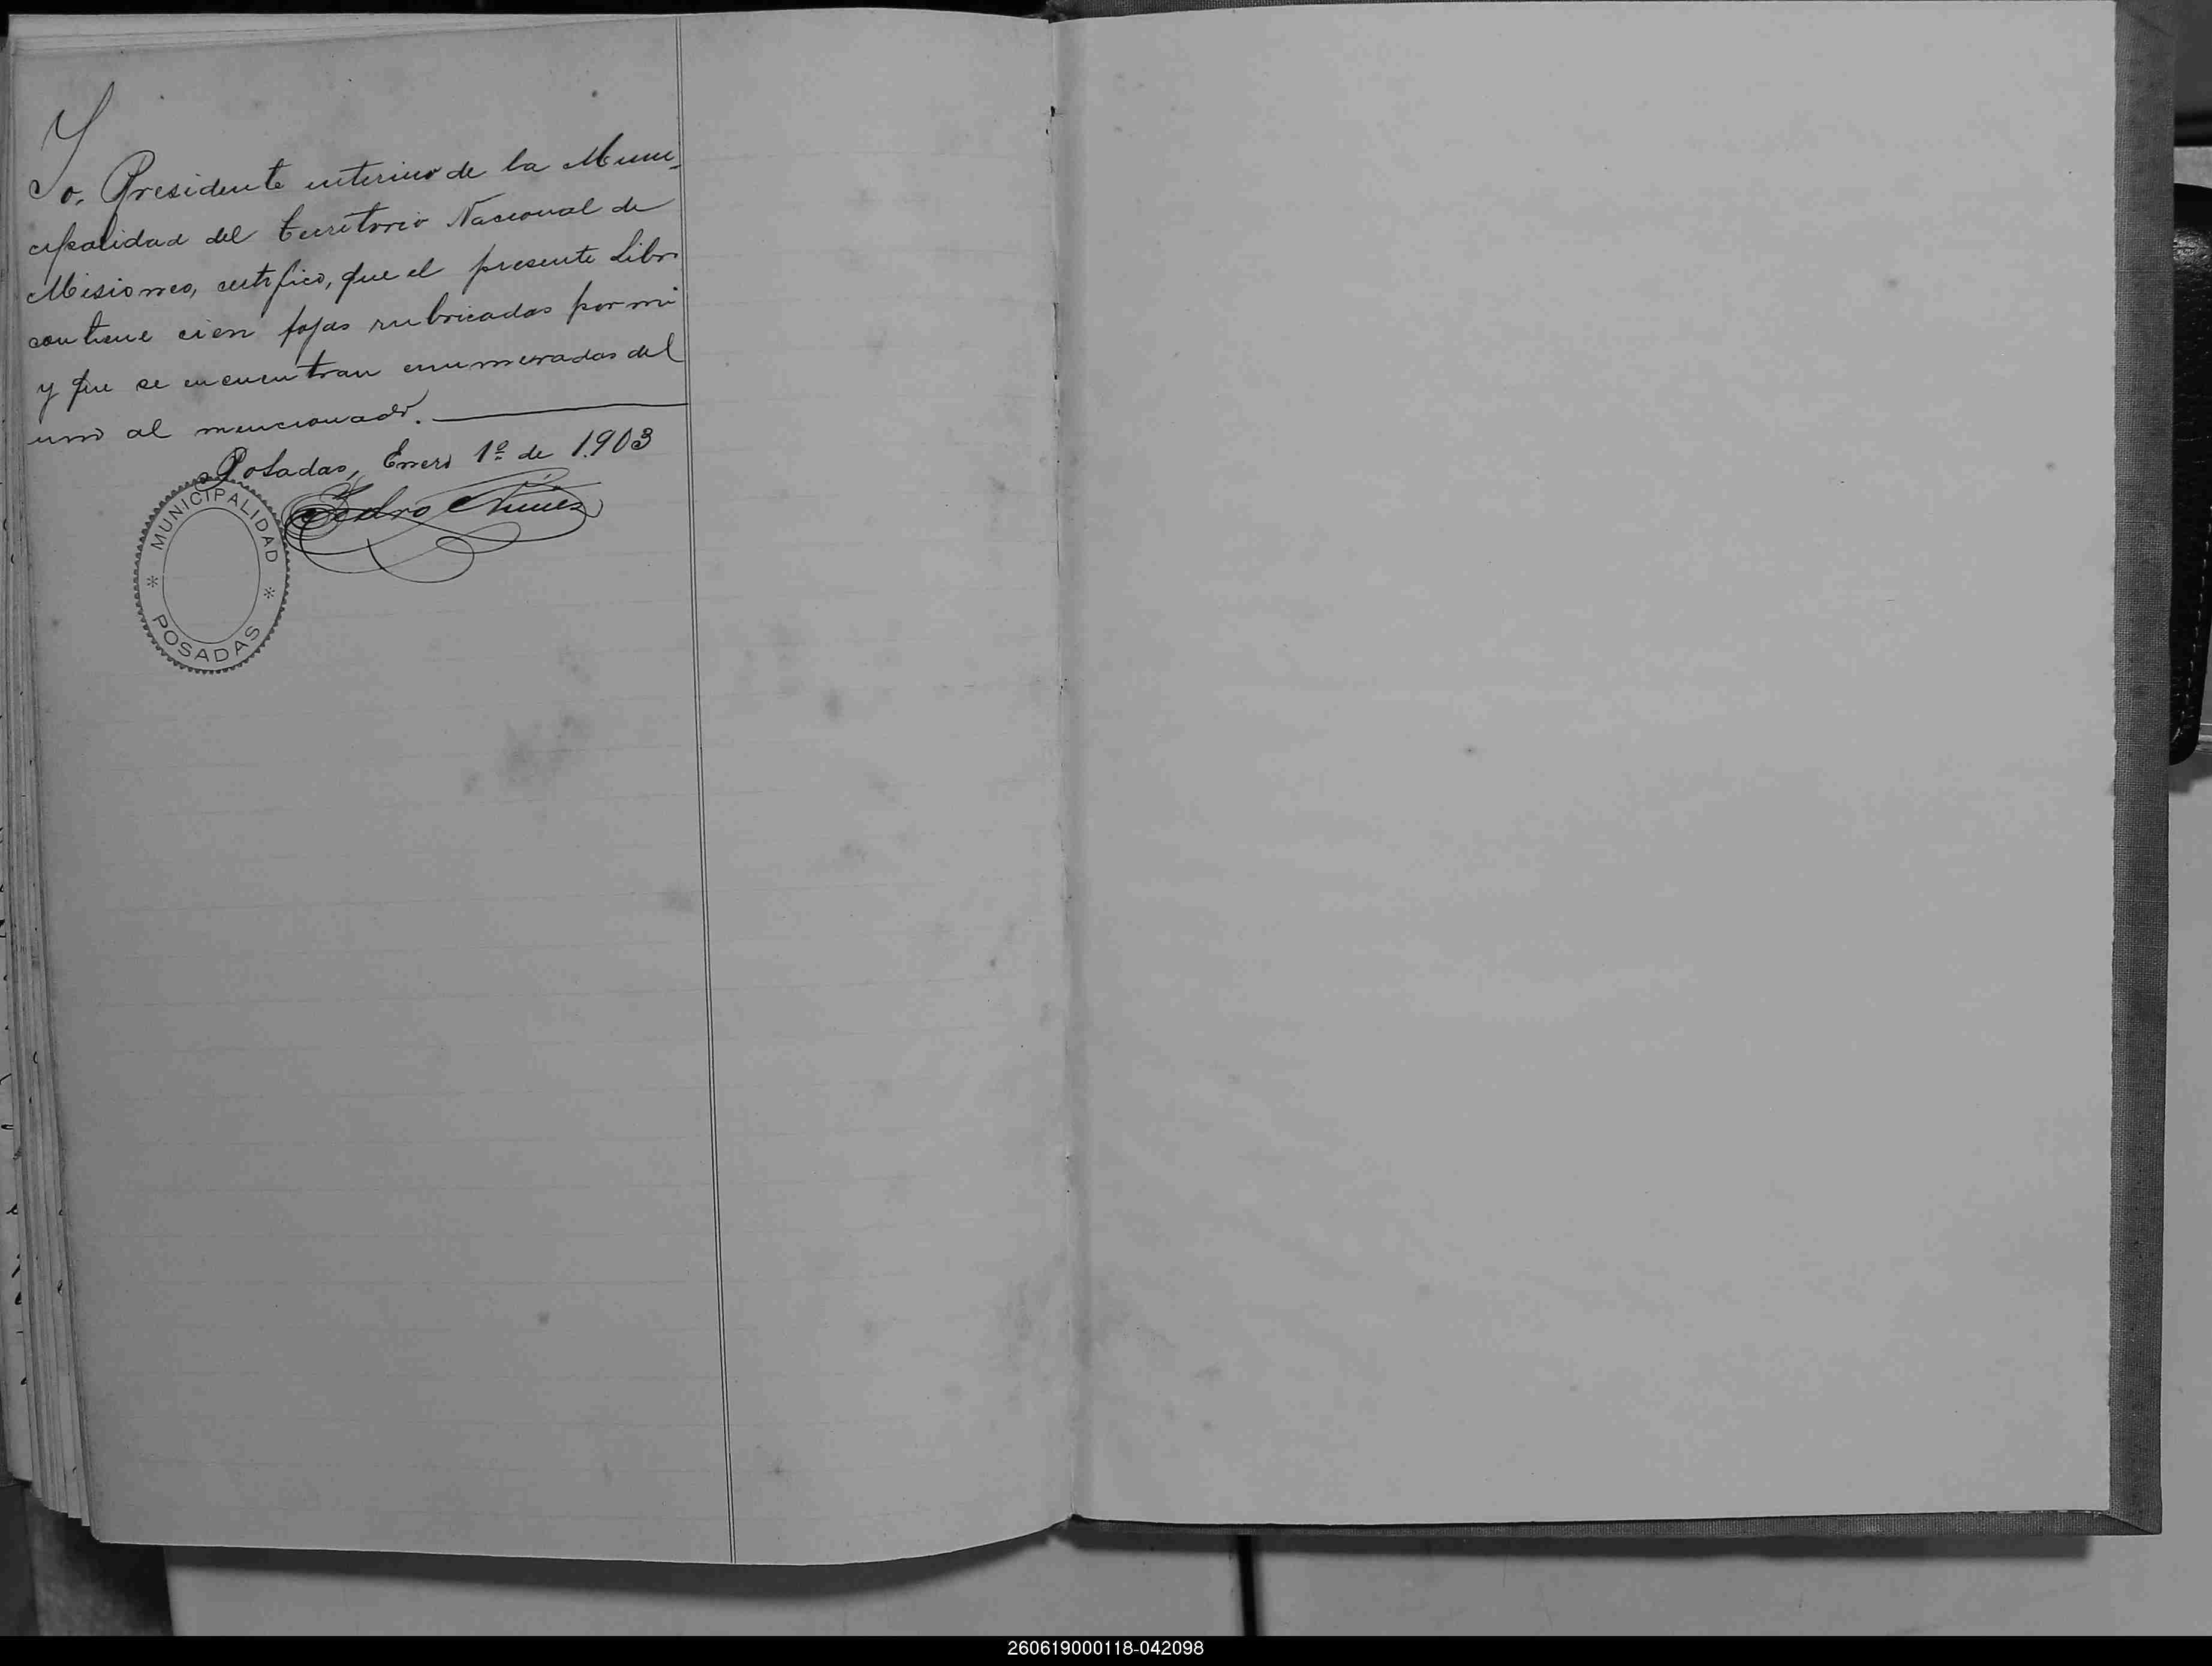 Yo, Presidente interino de la Muni-
cipalidad del territorio Nacional de
Misiones, certifico, que el presente Libro
contiene cien fojas rubricadas por mi
y que se encuentran enumeradas del
uno al mencionado.
Posadas, Enero 1º de 1.903
Pedro Nuñez
MUNICIPALIDAD
* *
POSADAS
260619000118-042098